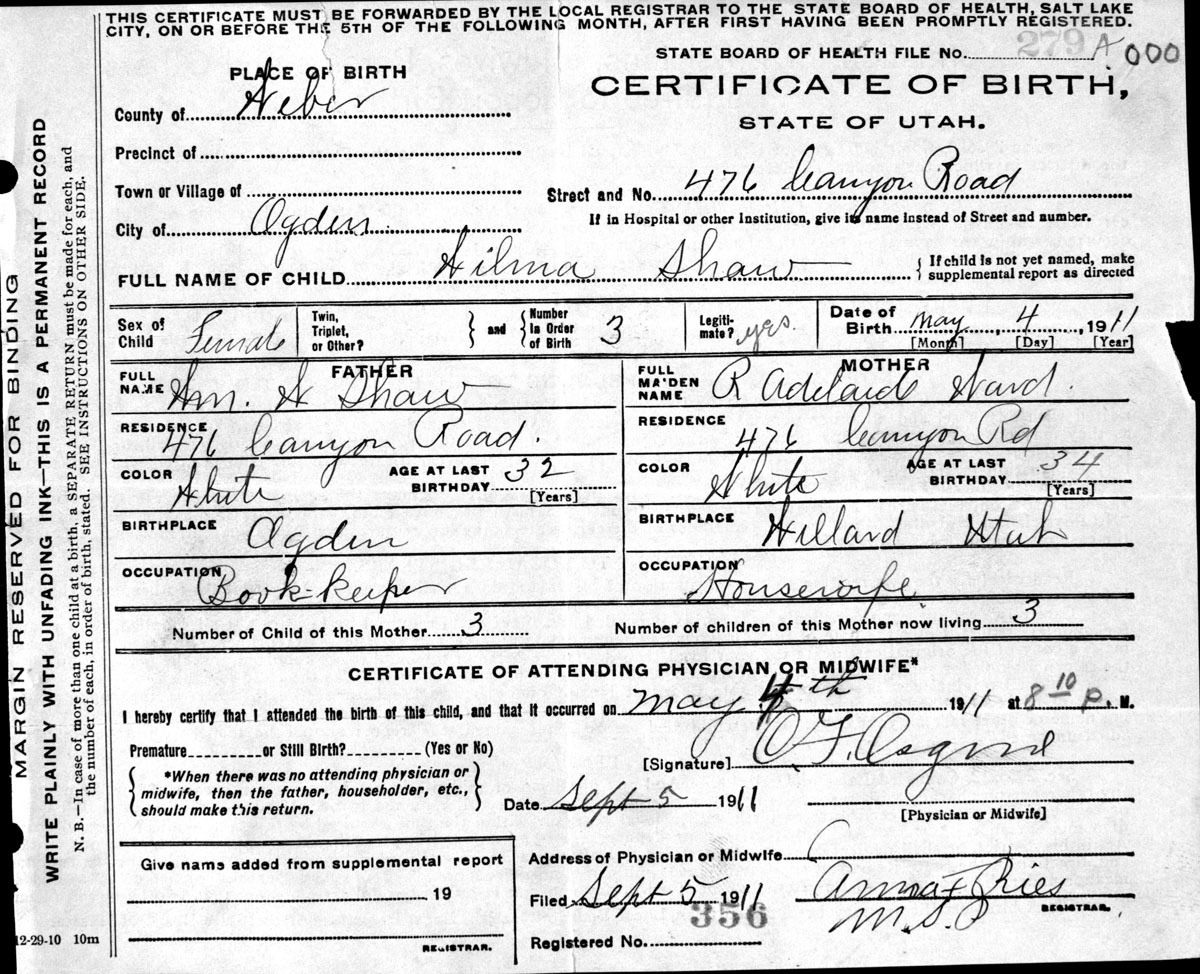 THIS CERTIFICATE MUST BE FORWARDED BY THE LOCAL REGISTRAR TO THE STATE BOARD OF HEALTH, SALT LAKE
CITY, ON OR BEFORE THE 5TH OF THE FOLLOWING MONTH, AFTER FIRST HAVING BEEN PROMPTLY REGISTERED.
STATE BOARD OF HEALTH FILE No. 279 A 000
PLACE OF BIRTH
CERTIFICATE OF BIRTH,
STATE OF UTAH.
County of Weber
Precinct of
Town or Village of
Street and No. 476 Canyon Road
If in Hospital or other Institution, give its name instead of Street and number.
City of Ogden
FULL NAME OF CHILD Wilma Shaw { If child is not yet named, make
supplemental report as directed
Sex of Child Female
Twin, Triplet, or Other? } and { Number in Order of Birth 3
Legiti-mate? yes.
Date of Birth May 4, 1911
[Month] [Day] [Year]
FATHER
FULL NAME Wm. W Shaw
MOTHER
FULL MAIDEN NAME R Adelaide Ward.
RESIDENCE 476 Canyon Road.
RESIDENCE 476 Canyon Rd
COLOR White AGE AT LAST BIRTHDAY 32 [Years]
COLOR White AGE AT LAST BIRTHDAY 34 [Years]
BIRTHPLACE Ogden
BIRTHPLACE Willard Utah
OCCUPATION Book-keeper
OCCUPATION Housewife
Number of Child of this Mother 3
Number of children of this Mother now living 3
CERTIFICATE OF ATTENDING PHYSICIAN OR MIDWIFE*
I hereby certify that I attended the birth of this child, and that it occurred on May 4th 1911 at 8 10 P. M.
Premature or Still Birth? (Yes or No)
[Signature]
*When there was no attending physician or
midwife, then the father, householder, etc.,
should make this return.
Date Sept 5 1911
[Physician or Midwife]
Give name added from supplemental report
19
REGISTRAR.
Address of Physician or Midwife
Filed Sept 5 1911
Anna F Ries
REGISTRAR.
356
Registered No.
MARGIN RESERVED FOR BINDING
WRITE PLAINLY WITH UNFADING INK—THIS IS A PERMANENT RECORD
N. B.—In case of more than one child at a birth, a SEPARATE RETURN must be made for each, and
the number of each, in order of birth, stated. SEE INSTRUCTIONS ON OTHER SIDE.
12-29-10 10m